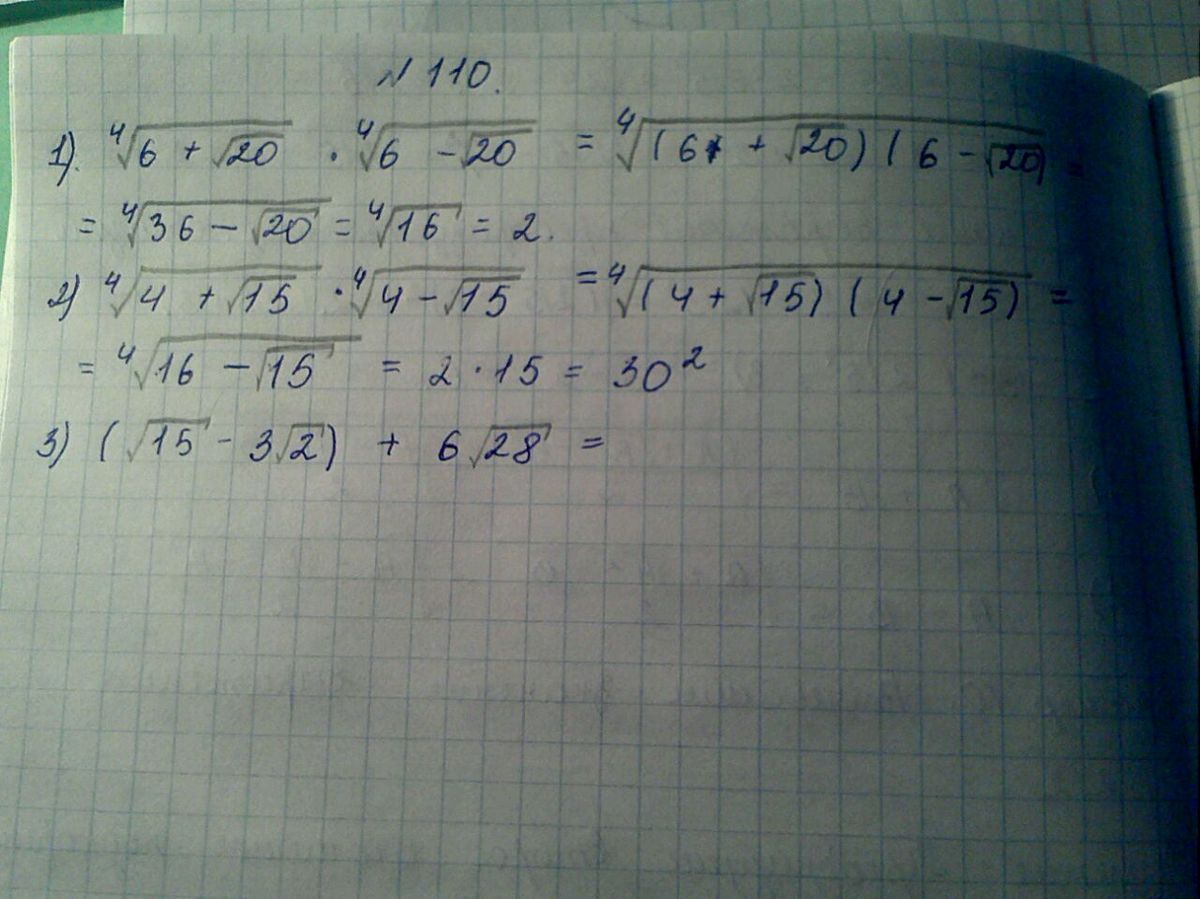 № 110.
1). ⁴√(6 + √20) · ⁴√(6 - √20) = ⁴√((6 + √20)(6 - √20)) =
= ⁴√(36 - √20) = ⁴√16 = 2.
2) ⁴√(4 + √15) · ⁴√(4 - √15) = ⁴√((4 + √15)(4 - √15)) =
= ⁴√(16 - √15) = 2 · 15 = 30²
3) (√15 - 3√2) + 6√28 =